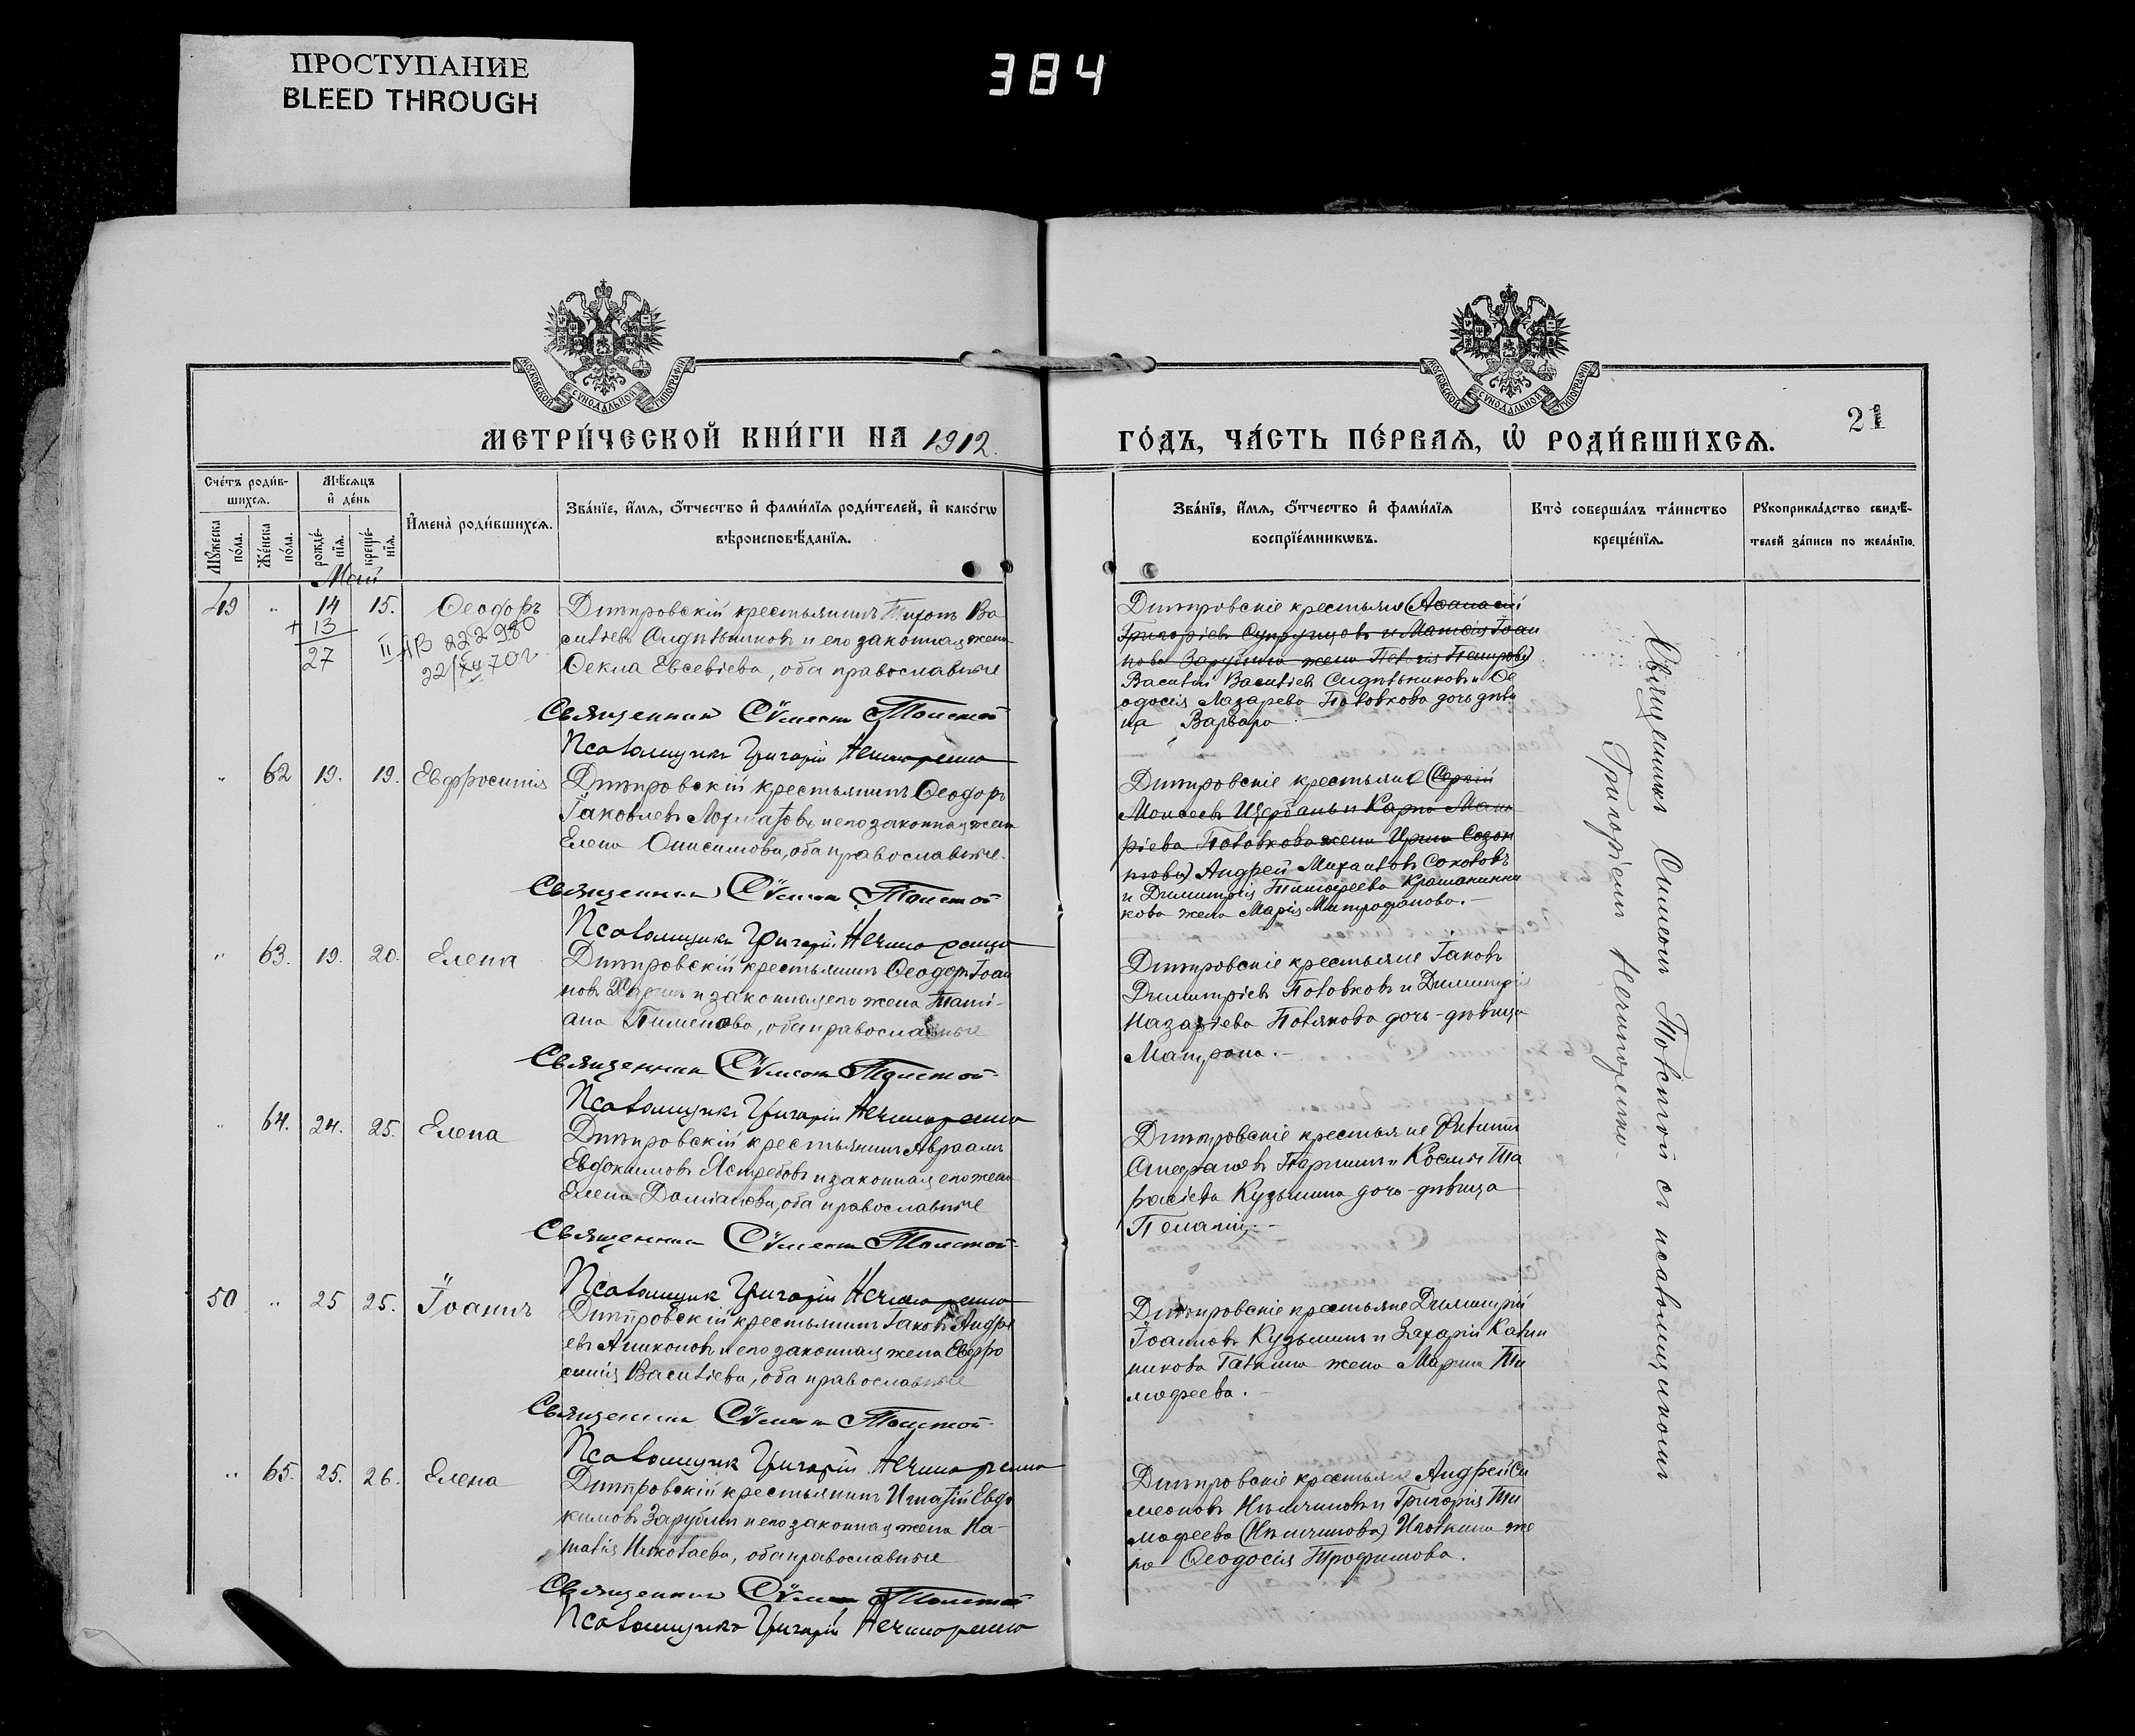 ПРОСТУПАНИЕ
BLEED THROUGH
384
МОСКОВСКОЙ СѴНОДАЛЬНОЙ ТИПОГРАФІИ
МОСКОВСКОЙ СѴНОДАЛЬНОЙ ТИПОГРАФІИ
МЕТРИ́ЧЕСКОЙ КНИ́ГИ НА 1912.
ГО́ДЪ, ЧА́СТЬ ПЕ́РВАѦ, Ѡ҆ РОДИ́ВШИХСѦ.
21
Сче́тъ роди́в-
шихсѧ.
Мꙋ́жеска по́ла.
Же́нска по́ла.
Мѣ́сѧцъ
и҆ де́нь
рожде́-нїѧ.
креще́-нїѧ.
И҆мена̀ роди́вшихсѧ.
Зва́нїе, и҆́мѧ, ѻ҆́тчество и҆ фами́лїѧ роди́телей, и҆ како́гѡ
вѣроисповѣ́данїѧ.
Зва́нїе, и҆́мѧ, ѻ҆́тчество и҆ фами́лїѧ
воспрїе́мникѡвъ.
Кто̀ соверша́лъ та́инство
креще́нїѧ.
Рꙋкоприкла́дство свидѣ́-
телей за́писи по жела́нїю.
Май
49 " 14 15. Ѳеодоръ
+ 13
27
II АВ 222980
Дмитровскій крестьянинъ Тихонъ Ва
сильевъ Сидѣльниковъ и его законная жена
Ѳекла Евсевіева, оба православные
Священникъ Сѵмеонъ Толстой
Псаломщикъ Григорій Нечипоренко
Дмитровскіе крестьяне (Аѳанасій
Григоріевъ Супруновъ и Матѳія Іоан
нова Зарубина жена Пелагія Петрова)
Василій Васильевъ Сидѣльниковъ и Ѳе
одосія Лазарева Головкова дочь дѣви
ца Варвара
" 62 19. 19. Евфросинія
Дмитровскій крестьянинъ Ѳеодоръ
Іаковлевъ и его законная жена
Елена Онисимова, оба православные.
Священникъ Сѵмеонъ Толстой
Псаломщикъ Григорій Нечипоренко
Дмитровскіе крестьяне (Сергій
Моисеевъ Щербань и Карпа
Головкова жена Ирина Созон
това) Андрей Михаиловъ Соколовъ
и Димитрія Тимоѳеева
кова жена Марія Митрофанова.-
" 63. 19. 20. Елена
Дмитровскій крестьянинъ Ѳеодоръ Іоан
новъ и законная его жена Таті-
ана Пименова, оба православные
Священникъ Сѵмеонъ Толстой
Псаломщикъ Григорій Нечипоренко
Дмитровскіе крестьяне Іаковъ
Димитріевъ Головковъ и Димитрія
Назаріева Полякова дочь-дѣвица
Матрона.-
" 64. 24. 25. Елена
Дмитровскій крестьянинъ Авраамъ
Евдокимовъ Ястребовъ и законная его жена
Елена Даміанова, оба православные
Священникъ Сѵмеонъ Толстой
Псаломщикъ Григорій Нечипоренко
Дмитровскіе крестьяне Филиппъ
и Космы Та
расіева Кузьмина дочь-дѣвица
Пелагія.-
50 " 25 25. Іоаннъ
Дмитровскій крестьянинъ Іаковъ Андре
евъ Анисковъ и его законная жена Евфро
синія Васильева, оба православные
Священникъ Сѵмеонъ Толстой
Псаломщикъ Григорій Нечипоренко
Дмитровскіе крестьяне Димитрій
Іоанновъ Кузьминъ и Захарій Калин
никова жена Марина Ти
моѳеева.-
" 65. 25. 26. Елена
Дмитровскій крестьянинъ Игнатій Евдо
кимовъ Зарубинъ и его законная жена На-
талія Николаева, оба православные
Священникъ Сѵмеонъ Толстой
Псаломщикъ Григорій Нечипоренко
Дмитровскіе крестьяне Андрей Си
меоновъ и Григорія Ти
моѳеева же
на Ѳеодосія Трофимова.
Священникъ Симеонъ Толстой съ псаломщикомъ
Григоріемъ Нечипоренко-